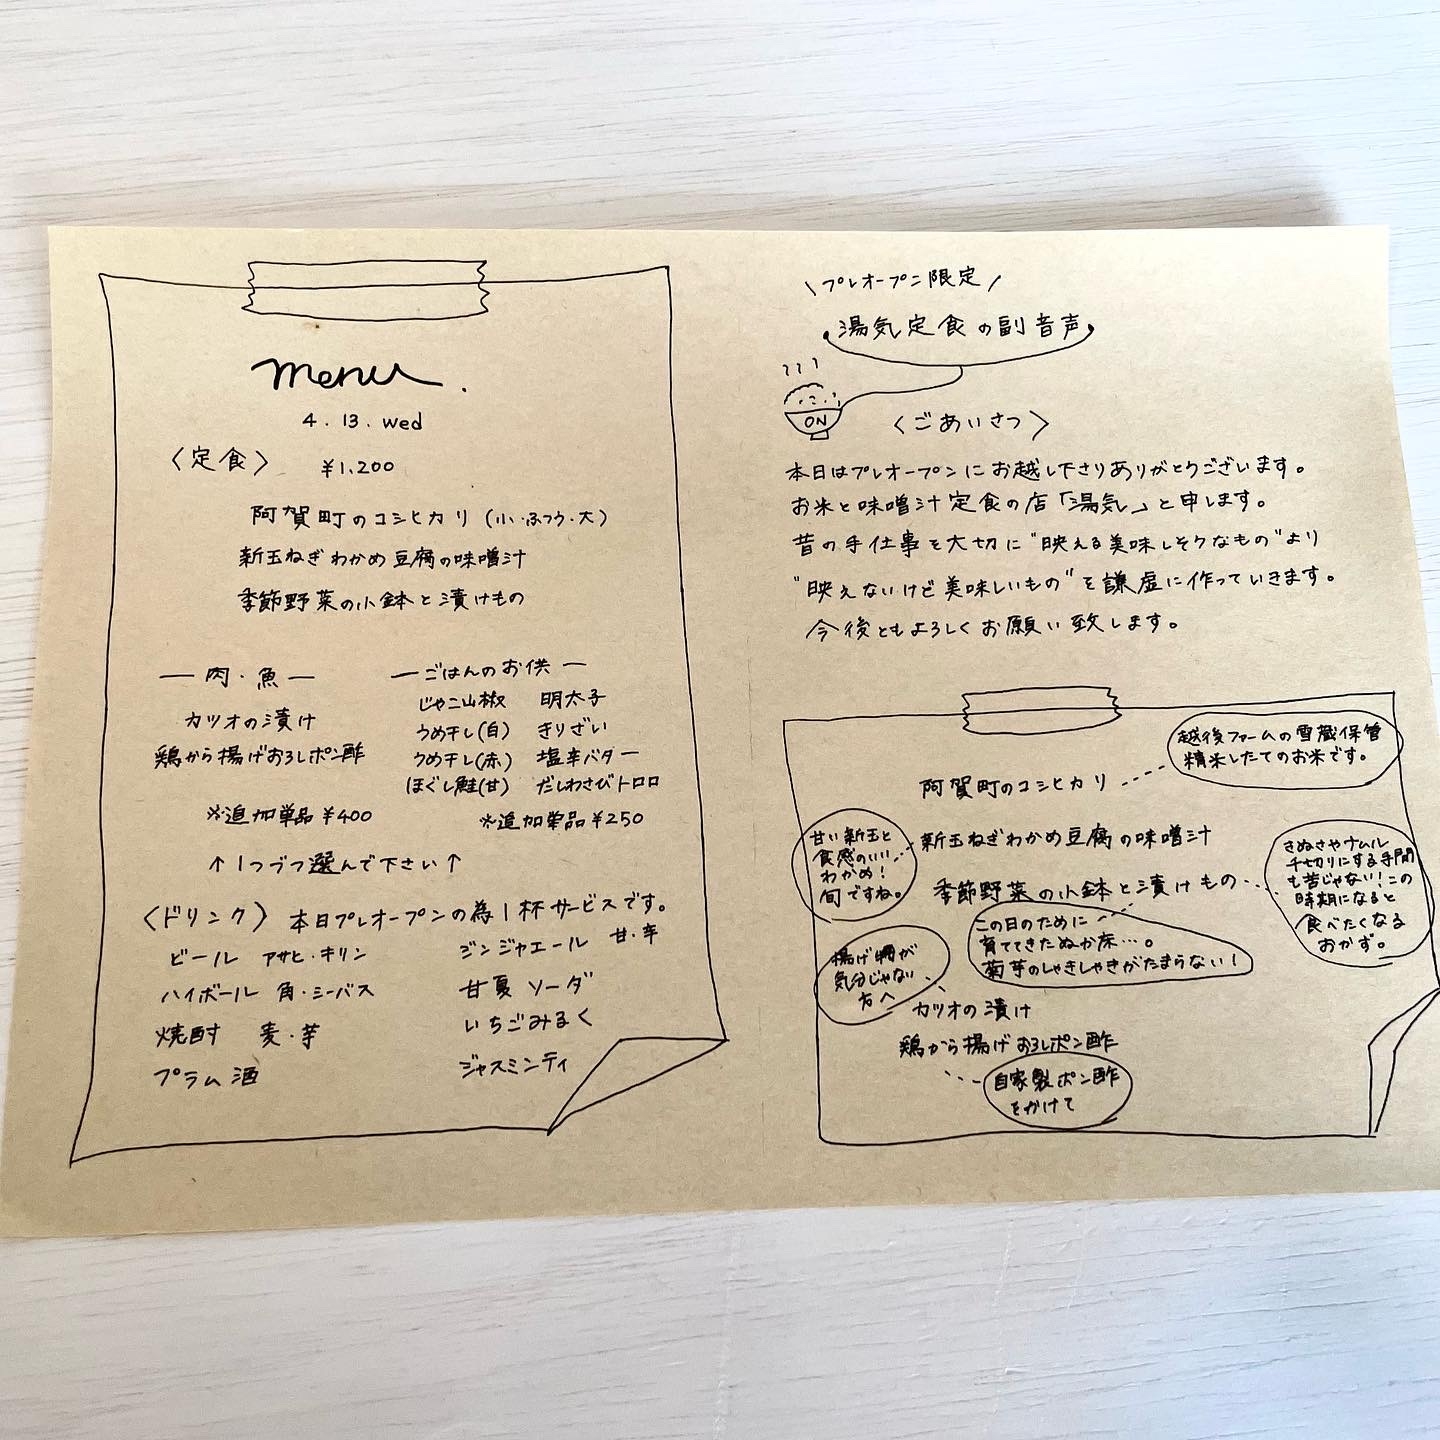 menu.
4.13.wed
〈定食〉 ¥1,200
阿賀町のコシヒカリ(小・ふつう・大)
新玉ねぎわかめ豆腐の味噌汁
季節野菜の小鉢と漬けもの
ー肉・魚ー
カツオの漬け
鶏から揚げおろしポン酢
※追加単品¥400
ーごはんのお供ー
じゃこ山椒 明太子
うめ干し(白) きりざい
うめ干し(赤) 塩辛バター
ほぐし鮭(甘) だしわさびトロロ
※追加単品¥250
↑1つづつ選んで下さい↑
〈ドリンク〉本日プレオープンの為1杯サービスです。
ビール アサヒ・キリン
ハイボール 角・シーバス
焼酎 麦・芋
プラム酒
ジンジャエール 甘・辛
甘夏ソーダ
いちごみるく
ジャスミンティ
\プレオープン限定/
湯気定食の副音声
ON
〈ごあいさつ〉
本日はプレオープンにお越し下さりありがとうございます。
お米と味噌汁定食の店「湯気」と申します。
昔の手仕事を大切に"映える美味しそうなもの"より
"映えないけど美味しいもの"を謙虚に作っていきます。
今後ともよろしくお願い致します。
越後ファームの雪蔵保管
精米したてのお米です。
阿賀町のコシヒカリ
甘い新玉と
食感のいい
わかめ!
旬ですね。
新玉ねぎわかめ豆腐の味噌汁
季節野菜の小鉢と漬けもの
きぬさやナムル
千切りにする手間
も苦じゃない!この
時期になると
食べたくなる
おかず。
この日のために
育ててきたぬか床…。
菊芋のしゃきしゃきがたまらない!
揚げ物が
気分じゃない
方へ
カツオの漬け
鶏から揚げおろしポン酢
自家製ポン酢
をかけて